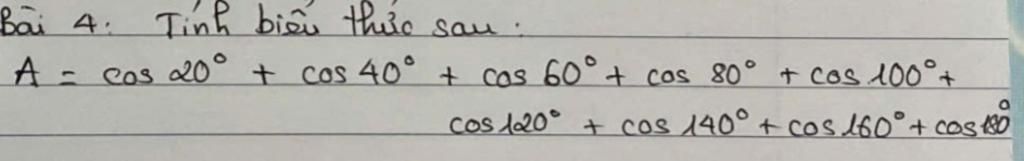 Bài 4: Tính biểu thức sau:
A = cos 20° + cos 40° + cos 60° + cos 80° + cos 100° +
cos 120° + cos 140° + cos 160° + cos 180°